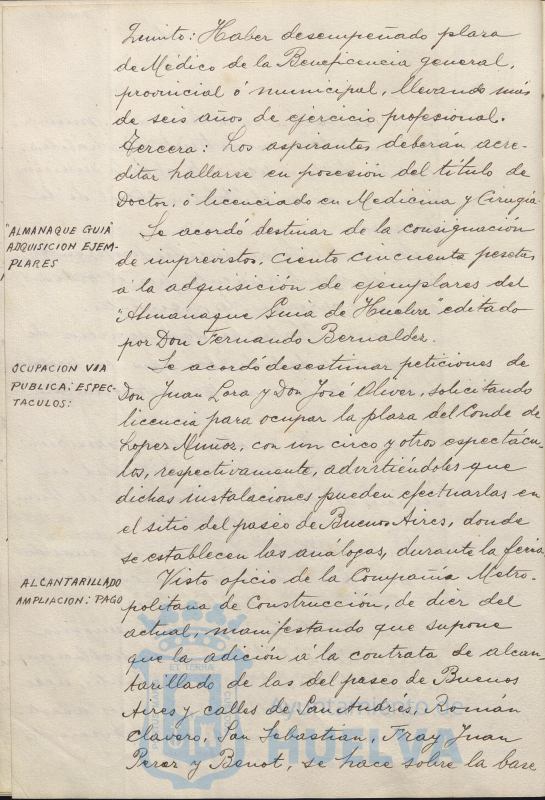 Quinto: Haber desempeñado plaza
de Médico de la Beneficencia general,
provincial ó municipal, llevando más
de seis años de ejercicio profesional.
Tercera: Los aspirantes deberán acre-
ditar hallarse en posesión del título de
Doctor, ó licenciado en Medicina y Cirugía.
"ALMANAQUE GUIA"
ADQUISICION EJEM-
PLARES
Se acordó destinar de la consignación
de imprevistos, ciento cincuenta pesetas
a la adquisición de ejemplares del
"Almanaque Guia de Huelva" editado
por Don Fernando Bernaldez.
OCUPACION VIA
PUBLICA: ESPEC-
TACULOS:
Se acordó desestimar peticiones de
Don Juan Lara y Don José Oliver, solicitando
licencia para ocupar la plaza del Conde de
Lopez Muñoz, con un circo y otros espectácu-
los, respectivamente, advirtiéndoles que
dichas instalaciones pueden efectuarlas en
el sitio del paseo de Buenos Aires, donde
se establecen las análogas, durante la feria.
ALCANTARILLADO
AMPLIACION: PAGO
Visto oficio de la Compañia Metro-
politana de Construcción, de diez del
actual, manifestando que supone
que la adición á la contrata de alcan-
tarillado de las del paseo de Buenos
Aires y calles de San Andrés, Román
Clavero, San Sebastian, Fray Juan
Perez y Benot, se hace sobre la base
Ayuntamiento de
HUELVA